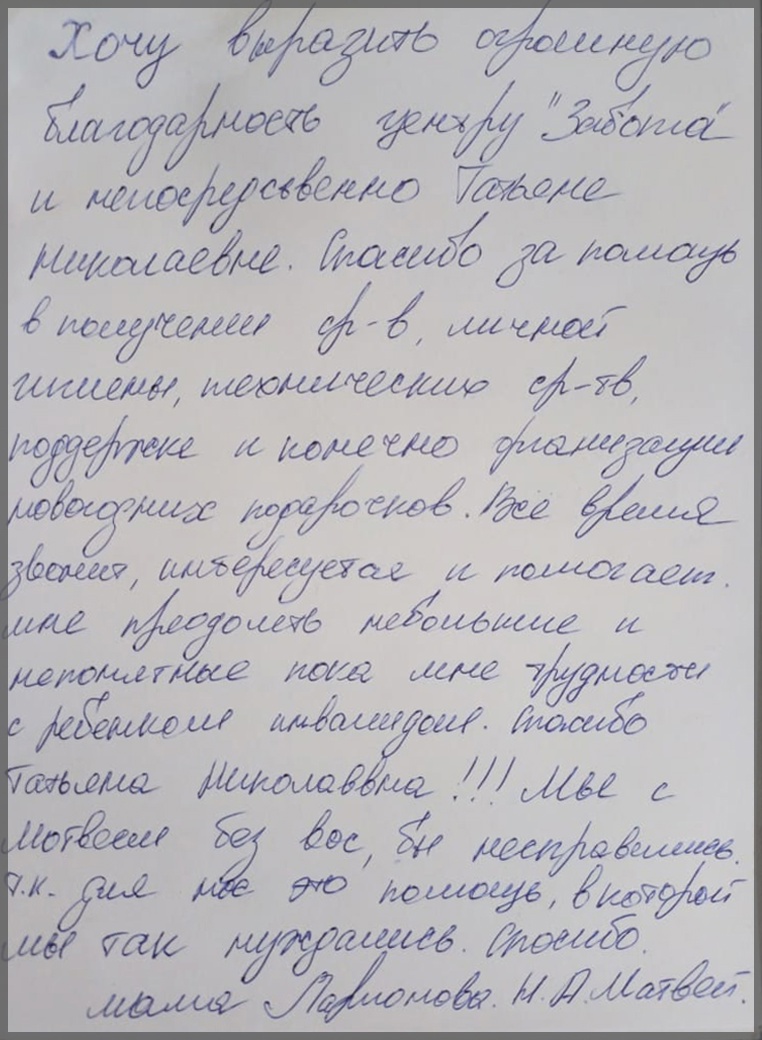 Хочу выразить огромную
благодарность центру "Забота"
и непосредсьвенно Татьяне
Николаевне. Спасибо за помощь
в получении ср-в, личной
гигиены, технических ср-тв,
поддержке и конечно организации
новогодних подарочков. Всё время
звонит, интересуется и помогает.
мне преодолеть небольшие и
непонятные пока мне трудности
с ребенком инвалидом. Спасибо
Татьяна Николаввна!!! Мы с
Мотвеем без вас, бы несправились.
т.к. для нас это помощь, в которой
мы так нуждались. Спосибо.
мама Ларионова. Н.А. Матвей.